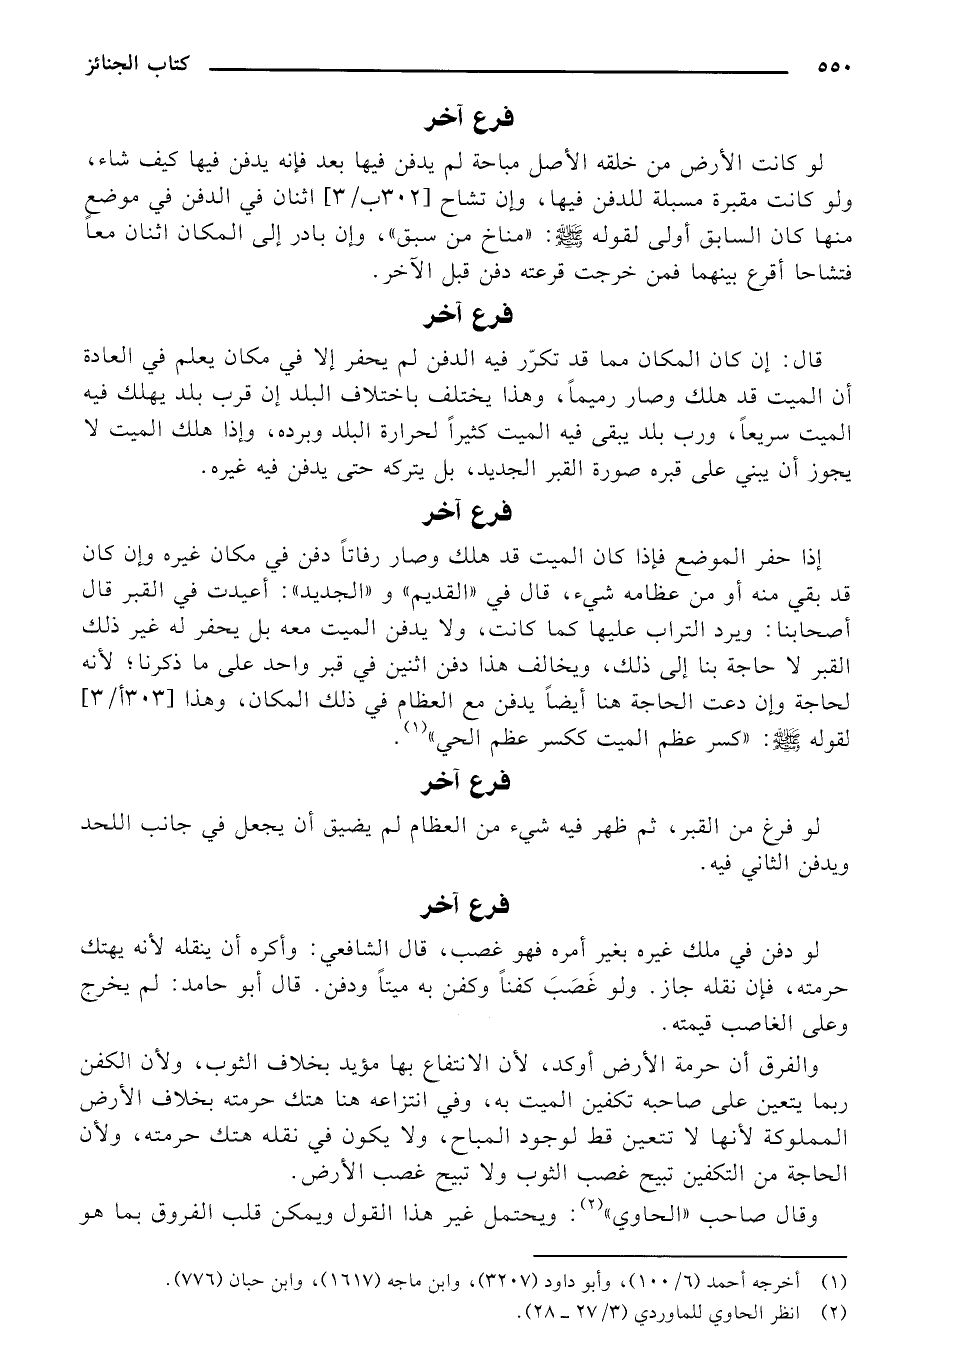 ٥٥٠ كتاب الجنائز
فرع آخر
لو كانت الأرض من خلقه الأصل مباحة لم يدفن فيها بعد فإنه يدفن فيها كيف شاء،
ولو كانت مقبرة مسبلة للدفن فيها، وإن تشاح [٣٠٢ب/ ٣] اثنان في الدفن في موضع
منها كان السابق أولى لقوله ﷺ: «مناخ من سبق»، وإن بادر إلى المكان اثنان معاً
فتشاحا أقرع بينهما فمن خرجت قرعته دفن قبل الآخر.
فرع آخر
قال: إن كان المكان مما قد تكرّر فيه الدفن لم يحفر إلا في مكان يعلم في العادة
أن الميت قد هلك وصار رميماً، وهذا يختلف باختلاف البلد إن قرب بلد يهلك فيه
الميت سريعاً، ورب بلد يبقى فيه الميت كثيراً لحرارة البلد وبرده، وإذا هلك الميت لا
يجوز أن يبني على قبره صورة القبر الجديد، بل يتركه حتى يدفن فيه غيره.
فرع آخر
إذا حفر الموضع فإذا كان الميت قد هلك وصار رفاتاً دفن في مكان غيره وإن كان
قد بقي منه أو من عظامه شيء، قال في «القديم» و «الجديد»: أعيدت في القبر قال
أصحابنا: ويرد التراب عليها كما كانت، ولا يدفن الميت معه بل يحفر له غير ذلك
القبر لا حاجة بنا إلى ذلك، ويخالف هذا دفن اثنين في قبر واحد على ما ذكرنا؛ لأنه
لحاجة وإن دعت الحاجة هنا أيضاً يدفن مع العظام في ذلك المكان، وهذا [٣٠٣أ/ ٣]
لقوله ﷺ: «كسر عظم الميت ككسر عظم الحي»(١).
فرع آخر
لو فرغ من القبر، ثم ظهر فيه شيء من العظام لم يضيق أن يجعل في جانب اللحد
ويدفن الثاني فيه.
فرع آخر
لو دفن في ملك غيره بغير أمره فهو غصب، قال الشافعي: وأكره أن ينقله لأنه يهتك
حرمته، فإن نقله جاز. ولو غَصَبَ كفناً وكفن به ميتاً ودفن. قال أبو حامد: لم يخرج
وعلى الغاصب قيمته.
والفرق أن حرمة الأرض أوكد، لأن الانتفاع بها مؤيد بخلاف الثوب، ولأن الكفن
ربما يتعين على صاحبه تكفين الميت به، وفي انتزاعه هنا هتك حرمته بخلاف الأرض
المملوكة لأنها لا تتعين قط لوجود المباح، ولا يكون في نقله هتك حرمته، ولأن
الحاجة من التكفين تبيح غصب الثوب ولا تبيح غصب الأرض.
وقال صاحب «الحاوي»(٢): ويحتمل غير هذا القول ويمكن قلب الفروق بما هو
(١) أخرجه أحمد (٦/ ١٠٠)، وأبو داود (٣٢٠٧)، وابن ماجه (١٦١٧)، وابن حبان (٧٧٦).
(٢) انظر الحاوي للماوردي (٣/ ٢٧ ـ ٢٨).